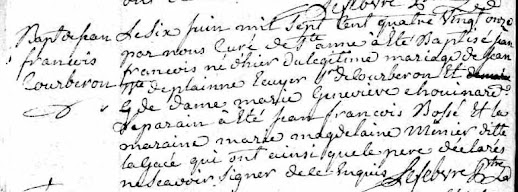 Bapt de jean
françois
Lourberon
Le six juin mil sept cent quatre vingt onze
par nous curé de Ste anne a été Baptisé jean
françois né d'hier du legitime mariage de jean
Bte deplainne Ecuyer Sr de Lourberon Et
Et de dame marie Geneviève chouinard
Le parain a été jean françois Bossé Et la
maraine marie magdelaine Mimier ditte
la Gacé qui ont ainsi que le pere declarés
ne scavoir signer de ce Enquis Lefebvre Ptre